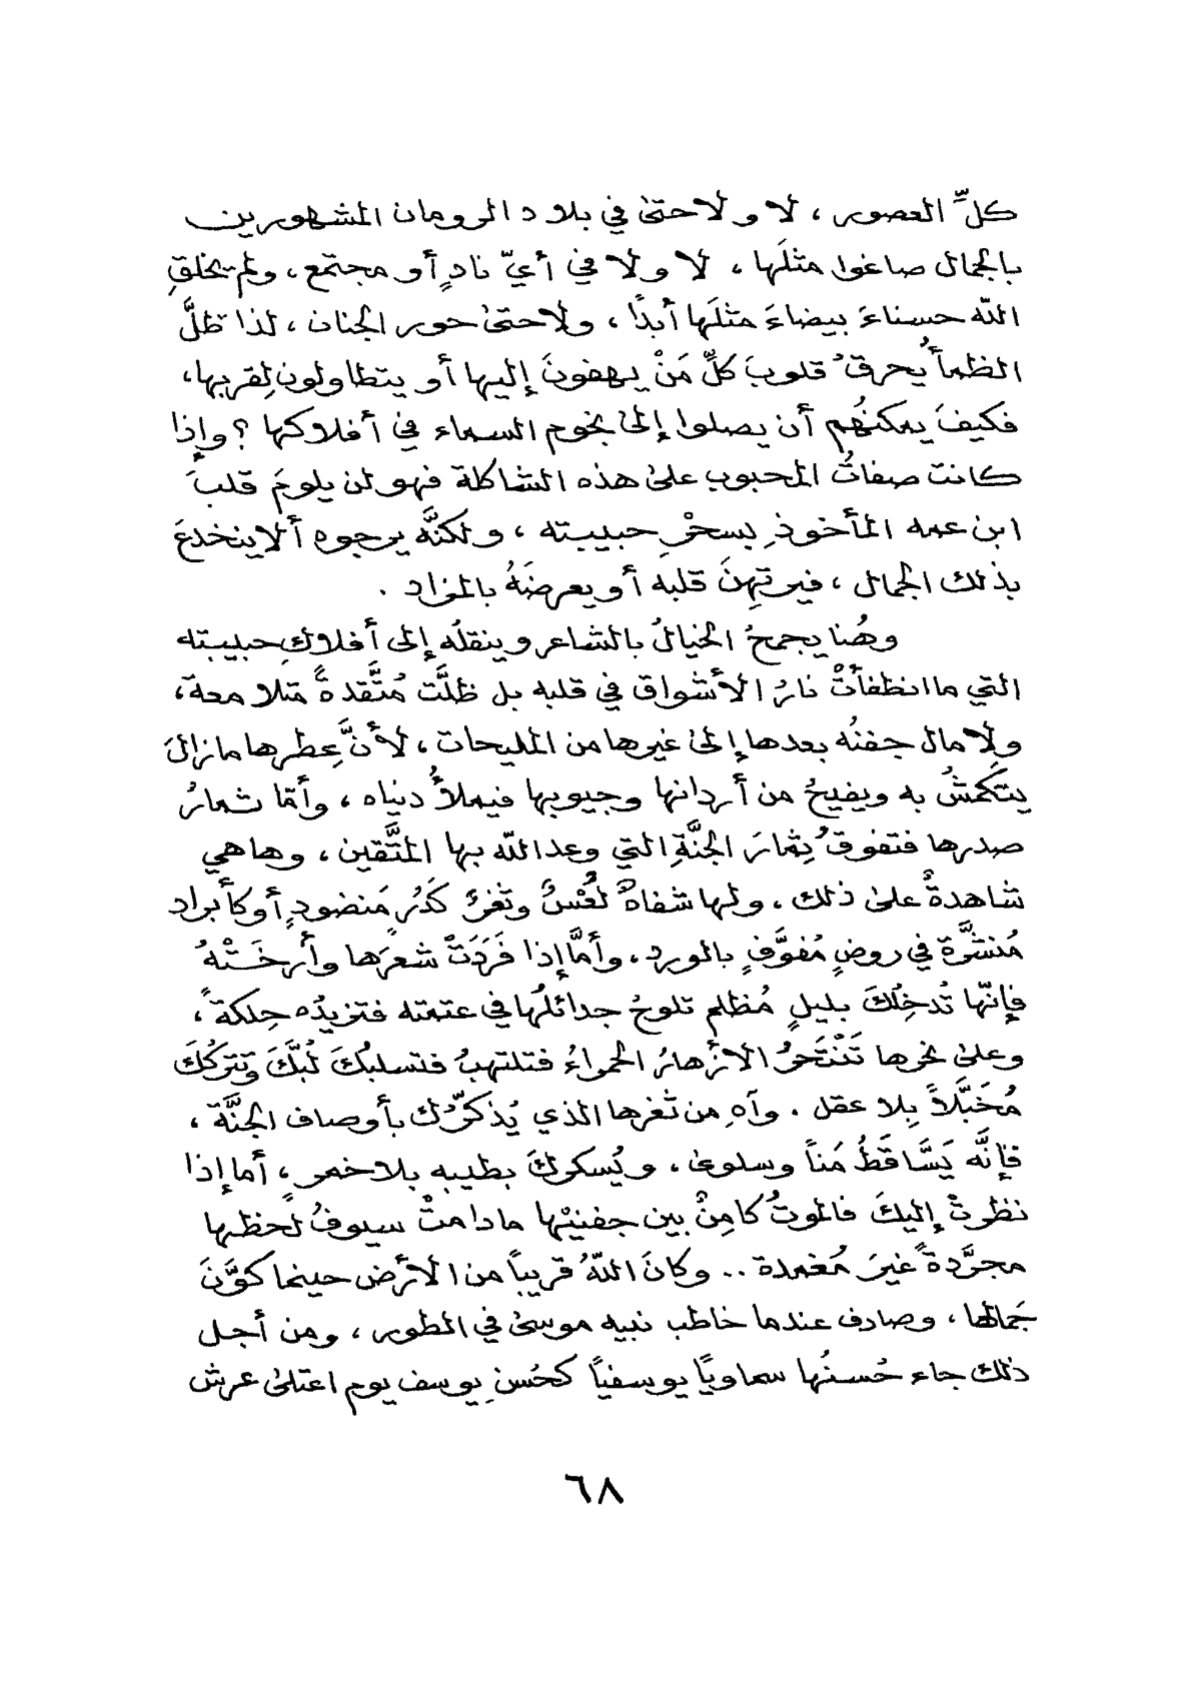 كلِّ العصور ، لا ولا حتىٰ في بلاد الرومان المشهورين
بالجمال صاغوا مثلَها ، لا ولا في أيّ نادٍ أو مجتمع ، ولم يخلقِ
الله حسناءَ بيضاءَ مثلَها أبداً ، ولا حتىٰ حور الجنان ، لذا ظلَّ
الظمأُ يحرقُ قلوبَ كلِّ مَنْ يهفونَ إليها أو يتطاولون لِقربها،
فكيفَ يمكنُهم أن يصلوا إلىٰ نجوم السماء في أفلاكها ؟ وإذا
كانت صفاتُ المحبوب علىٰ هذه الشاكلة فهو لن يلومَ قلبَ
ابن عمه المأخوذِ بِسحْرِ حبيبته ، ولكنَّه يرجوه ألا ينخدعَ
بذلك الجمال ، فيرتهِنَ قلبه أو يعرضَهُ بالمزاد .
وهُنا يجمحُ الخيالُ بالشاعر وينقلُه إلى أفلاكِ حبيبته
التي ما انطفأتْ نارُ الأشواق في قلبه بل ظلَّت مُتَّقدةً متلامعة،
ولا مال جفنُه بعدها إلىٰ غيرها من المليحات ، لأنَّ عِطرها مازالَ
يتكمشُ به ويفيحُ من أردانها وجيوبها فيملأُ دنياه ، وأمّا ثمارُ
صدرها فتفوقُ ثِمارَ الجنَّةِ التي وعد الله بها المتَّقين ، وها هي
شاهدةٌ علىٰ ذلك ، ولها شفاهٌ لُعْسٌ وثغرٌ كَدُرٍ مَنضودٍ أو كأبراد
مُنشَّرة في روضٍ مُفوَّفٍ بالورد ، وأمَّا إذا فَرَدَتْ شعرَها وأرخَتْهُ
فإنّها تُدخِلُكَ بليلٍ مُظلم تلوحُ جدائلُها في عتمته فتزيدُه حِلكةً ،
وعلىٰ نحرها تَنْتَحرُ الأزهارُ الحمراءُ فتلتهبُ فتسلبُكَ لُبَّكَ وتتركُكَ
مُخَبَّلاً بِلا عقل . وآهِ مِن ثغرها الذي يُذكرّك بأوصاف الجنَّة ،
فإنَّه يَسَّاقَطُ مَناً وسلوىٰ ، ويُسكركَ بطيبِه بلا خمرٍ ، أما إذا
نظرتْ إليكَ فالموتُ كامِنٌ بين جفنيْها ما دامتْ سيوفُ لحظها
مجرَّدةً غيرَ مُغمدة .. وكانَ اللهُ قريباً من الأرض حينما كوَّنَ
جَمالها ، وصادف عندما خاطب نبيه موسىٰ في الطور ، ومن أجل
ذلك جاء حُسنُها سماوياً يوسفياً كحُسْنِ يوسف يوم اعتلىٰ عرش
٦٨